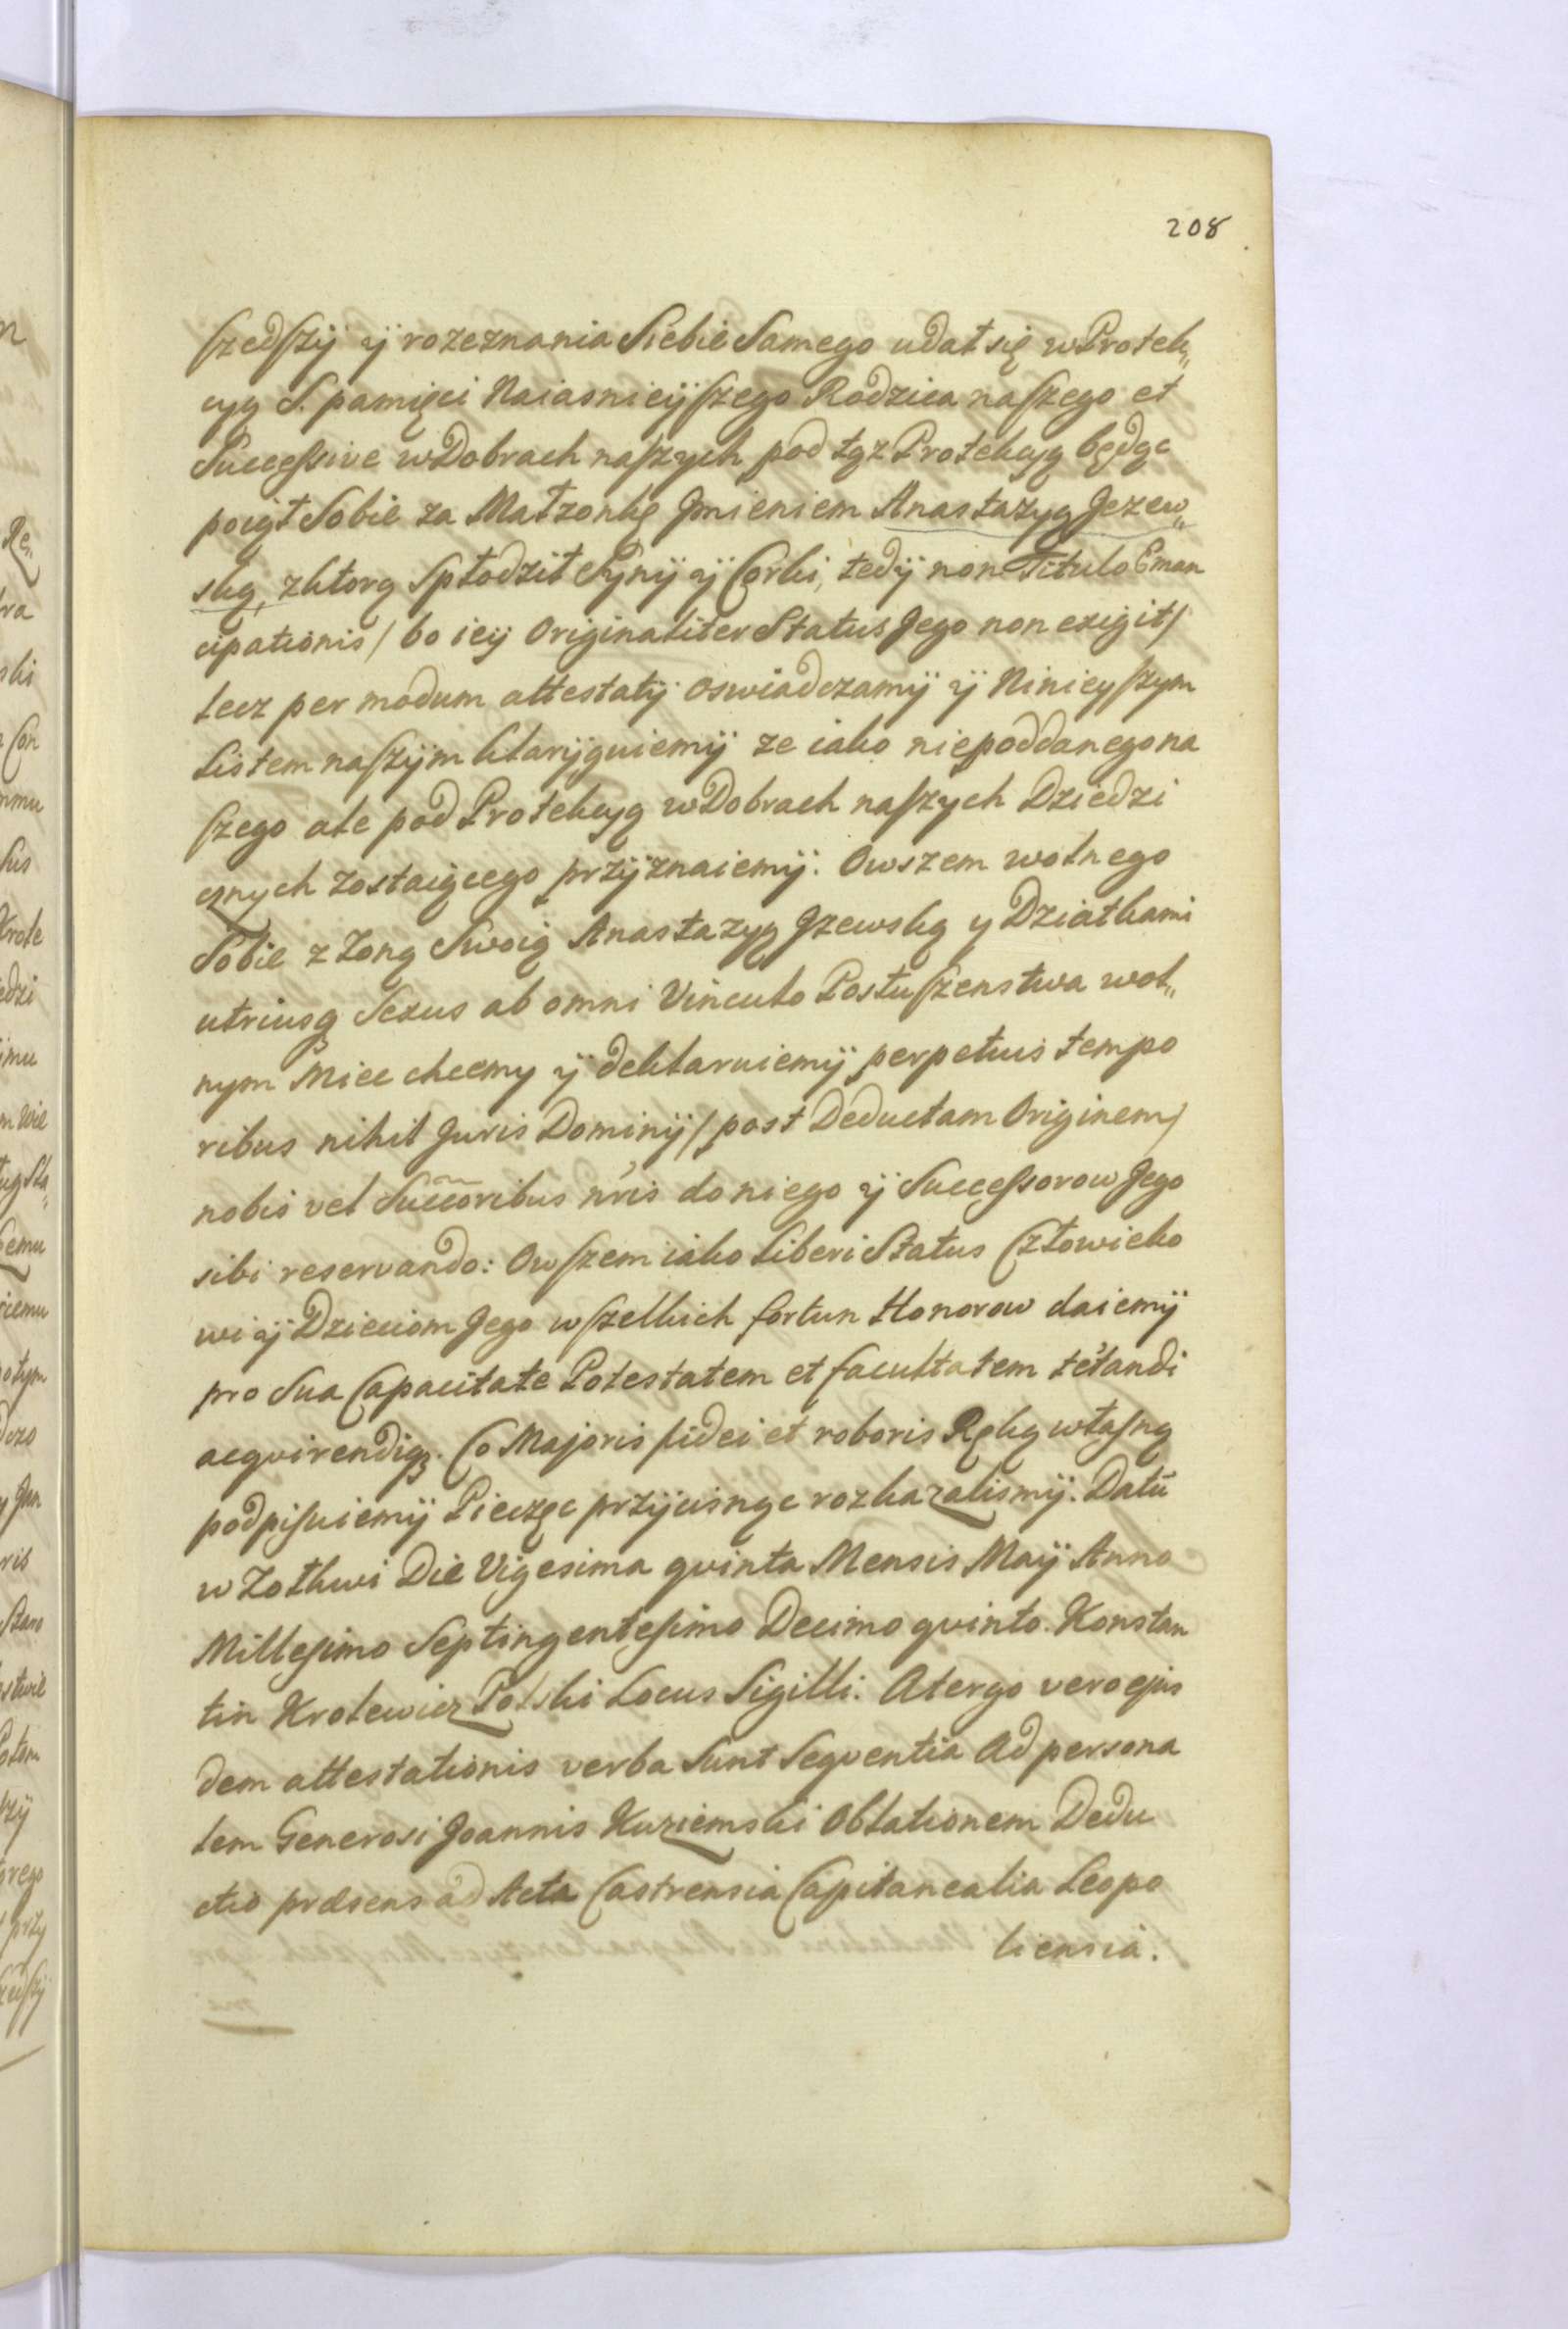 208
szedszÿ ÿ rozeznania Siebie Samego udał się w Protek„
cyą S. pamięci Naiasnieÿszego Rodzica naszego et
Successive w Dobrach naszych pod tąz Protekcyą będąc
poiął Sobie za Małzonkę Jmieniem Anastazyą Jezew„
ską, zktorą Spłodził Synÿ ÿ Corki, tedÿ non Titulo Eman
cipationis / bo ieÿ Originaliter Status Jego non exigit /
lecz per modum attestatÿ oswiadczamÿ ÿ Ninieyszym
Listem naszÿm klarÿguiemÿ ze iako niepoddanego na
szego ale pod Protekcyą w Dobrach naszych Dziedzi
cznych Zostaiącego przÿznaiemÿ. Owszem wolnego
Sobie z Zoną Swoią Anastazyą Jzewską y Dziatkami
utriusq Sexus ab omni Vinculo Posłuszenstwa wol„
nym Miec chcemy ÿ deklaruiemÿ perpetuis tempo
ribus nihil Juris Dominÿ / post Deductam Originem /
nobis vel Succoribus nris do niego ÿ Successorow Jego
sibi reservando: Owszem iako Liberi Status Człowieko
wi ÿ Dzieciom Jego wszelkich fortun Honorow daiemÿ
pro Sua Capacitate Potestatem et facultatem tetandi
acquirendiq. Co Majoris fidei et roboris Ręką własną
podpisuiemÿ Pieczęc przÿcisnąc rozkazalismÿ. Datū
w Zołkwi Die Vigesima quinta Mensis Maÿ Anno
Millesimo Septingentesimo Decimo quinto. Konstan
tin Krolewicz Polski Locus Sigilli. Atergo vero ejus
dem attestationis verba Sunt Sequentia Ad persona
lem Generosi Joannis Kuziemski Oblationem Dedu
ctio præsens ad Acta Castrensia Capitanealia Leopo
liensia.